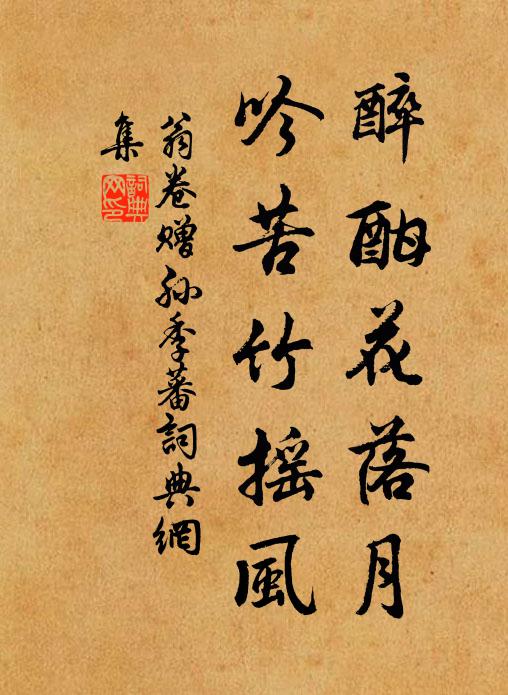 醉酣花落月
吟苦竹摇風
翁卷赠孙季蕃詞典網
集
詞典网印